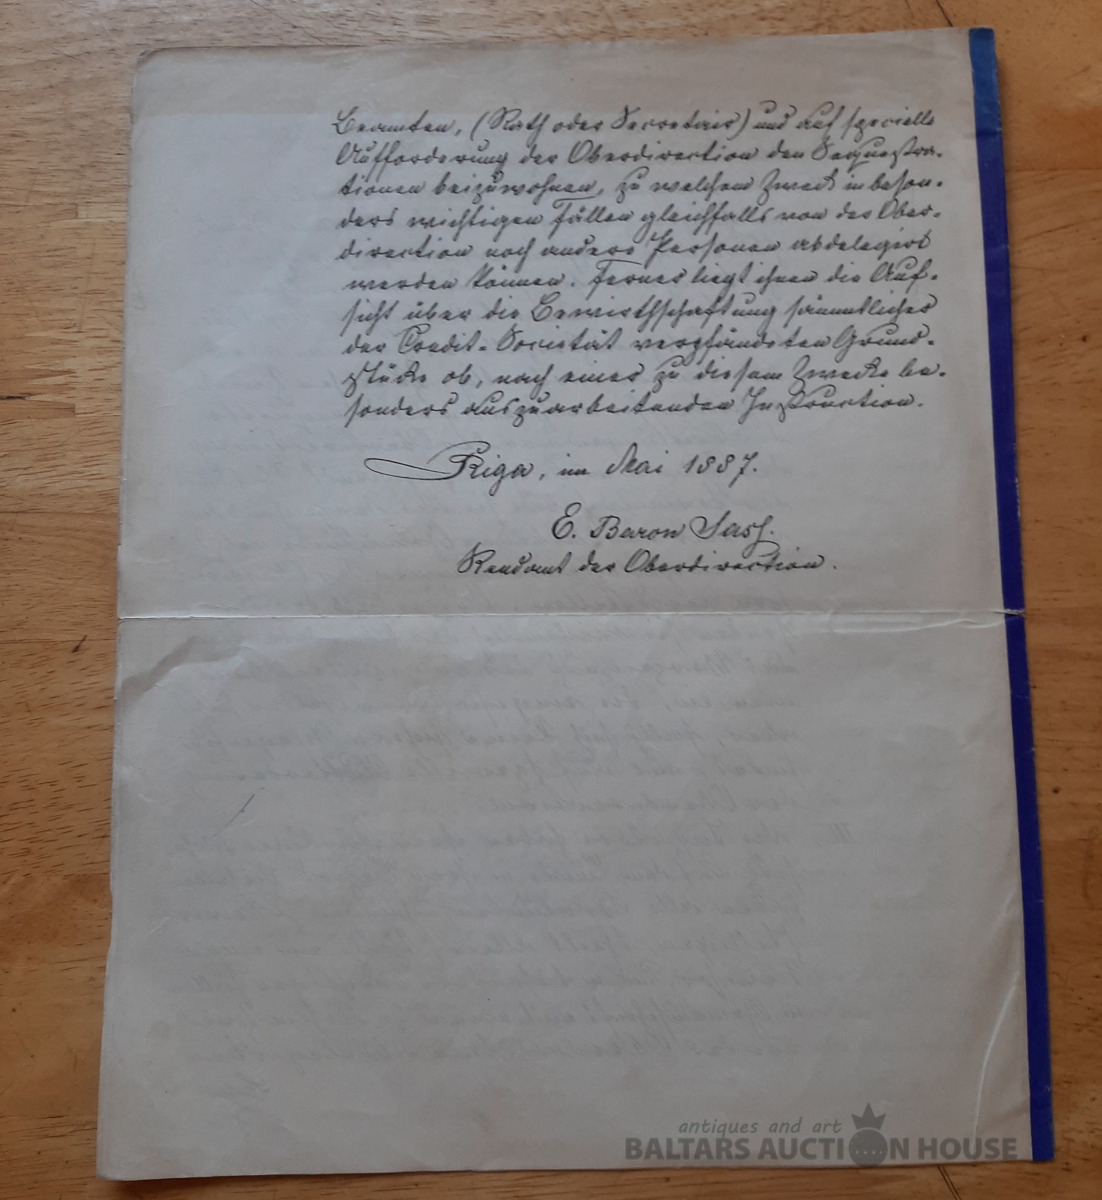 Beamten, (Rath oder Secretair) und auf specielle
Aufforderung der Oberdirection den Sequestra-
tionen beizuwohnen, zu welchem Zweck in beson-
ders wichtigen Fällen gleichfalls von der Ober-
direction noch andere Personen abdelegirt
werden können. Ferner liegt ihnen die Auf-
sicht über die Bewirthschaftung sämmtlicher
der Credit-Societät verpfändeten Grund-
stücke ob, nach einer zu diesem Zwecke be-
sonders auszuarbeitenden Instruction.
Riga, im Mai 1887.
E. Baron Sass.
Rendant der Oberdirection.
antiques and art
BALTARS AUCTION HOUSE